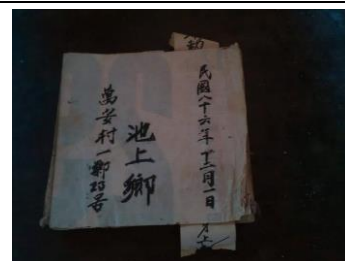 民國八十六年十二月一日
池上鄉
萬安村一鄰号